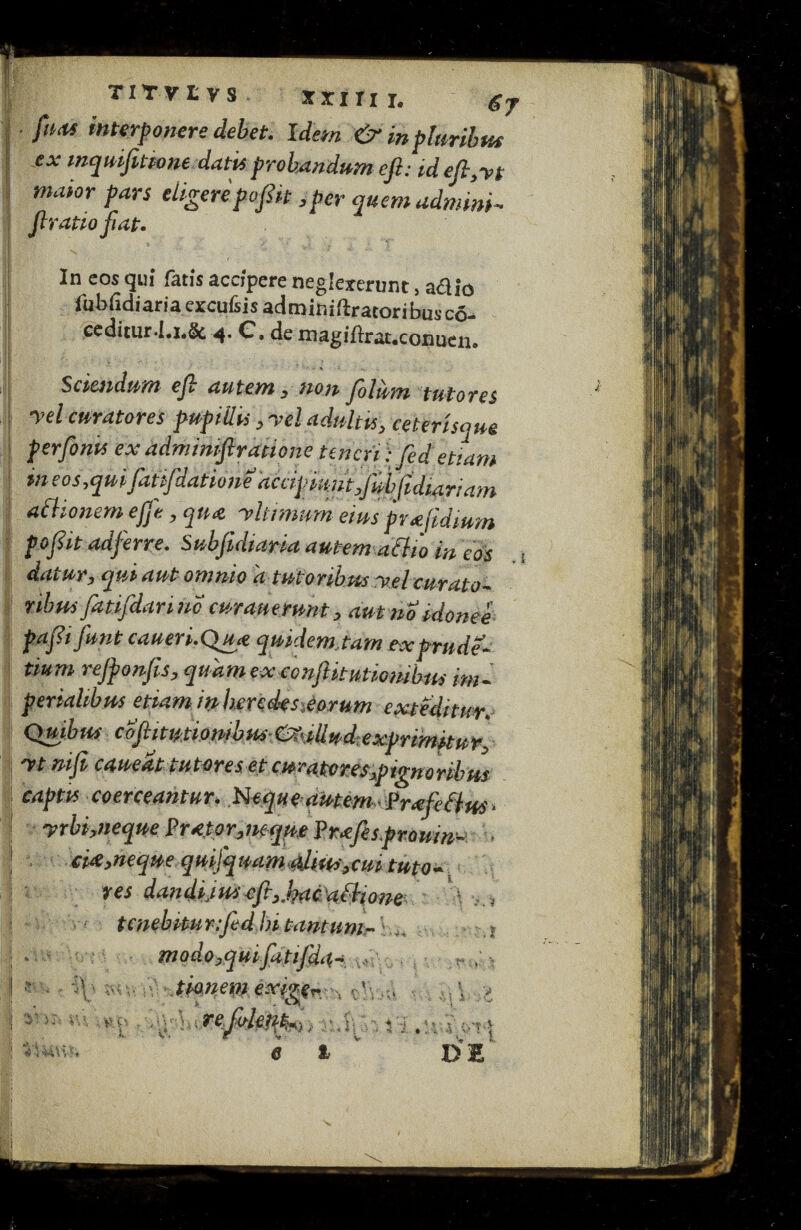 TITVLVS XXIIII. 67
ſuas interponere debet. Idem & in pluribus
ex inquiſitione datis probandum eſt: id eſt, vt
maior pars eligere poßit, per quem admini-
ſtratio fiat.
In eos qui ſatis accipere neglexerunt, actio
ſubſidiaria excuſsis adminiſtratoribus cõ-
ceditur.l.1.& 4. C. de magiſtrat.conuen.
Sciendum eſt autem, non ſolùm tutores
vel curatores pupillis, vel adultis, ceterísque
perſonis ex adminiſtratione teneri: ſed etiam
in eos, qui ſatiſdationē accipiunt, ſubſidiariam
actionem eſſe, quæ vltimum eius præſidium
poßit adferre. Subſidiaria autem actio in eos
datur, qui aut omnio à tutoribus vel curato-
ribus ſatiſdari nō curauerunt, aut nō idoneè
paßi ſunt caueri. Quæ quidem tam ex prudē-
tium reſponſis, quàm ex conſtitutionibus im-
perialibus etiam in heredes eorum extēditur.
Quibus cōſtitutionibus & illud exprimitur,
vt niſi caueāt tutores et curatores, pignoribus
captis coerceantur. Neque autem Præfectus
vrbi, neque Prætor, neque Præſes prouin-
ciæ, neque quiſquam alius, cui tuto-
res dandi ius eſt, hac actione
tenebitur: ſed hi tantum-
modo, qui ſatiſda-
tionem exige-
re ſolent.
e 2 DE